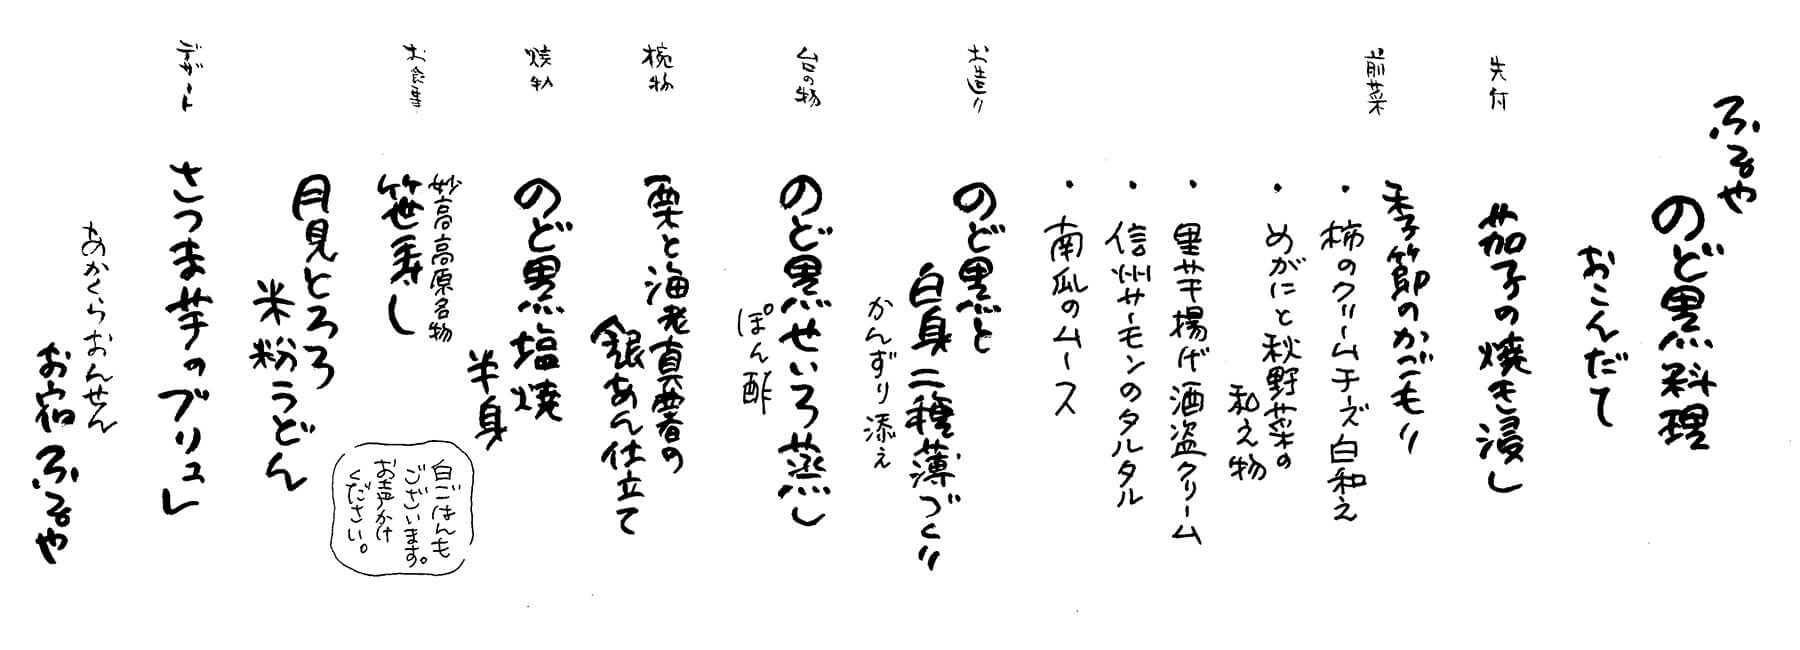 ふるや
のど黒料理
おこんだて
先付
茄子の焼き浸し
前菜
季節のかごもり
・柿のクリームチーズ白和え
・めがにと秋野菜の
和え物
・里芋揚げ酒盗クリーム
・信州サーモンのタルタル
・南瓜のムース
お造り
のど黒と
白身二種薄づくり
かんずり添え
台の物
のど黒せいろ蒸し
ぽん酢
椀物
栗と海老真薯の
銀あん仕立て
焼物
のど黒塩焼
半身
お食事
妙高高原名物
笹寿し
月見とろろ
米粉うどん
白ごはんも
ございます。
お声かけ
ください。
デザート
さつま芋のブリュレ
あかくらおんせん
お宿ふるや